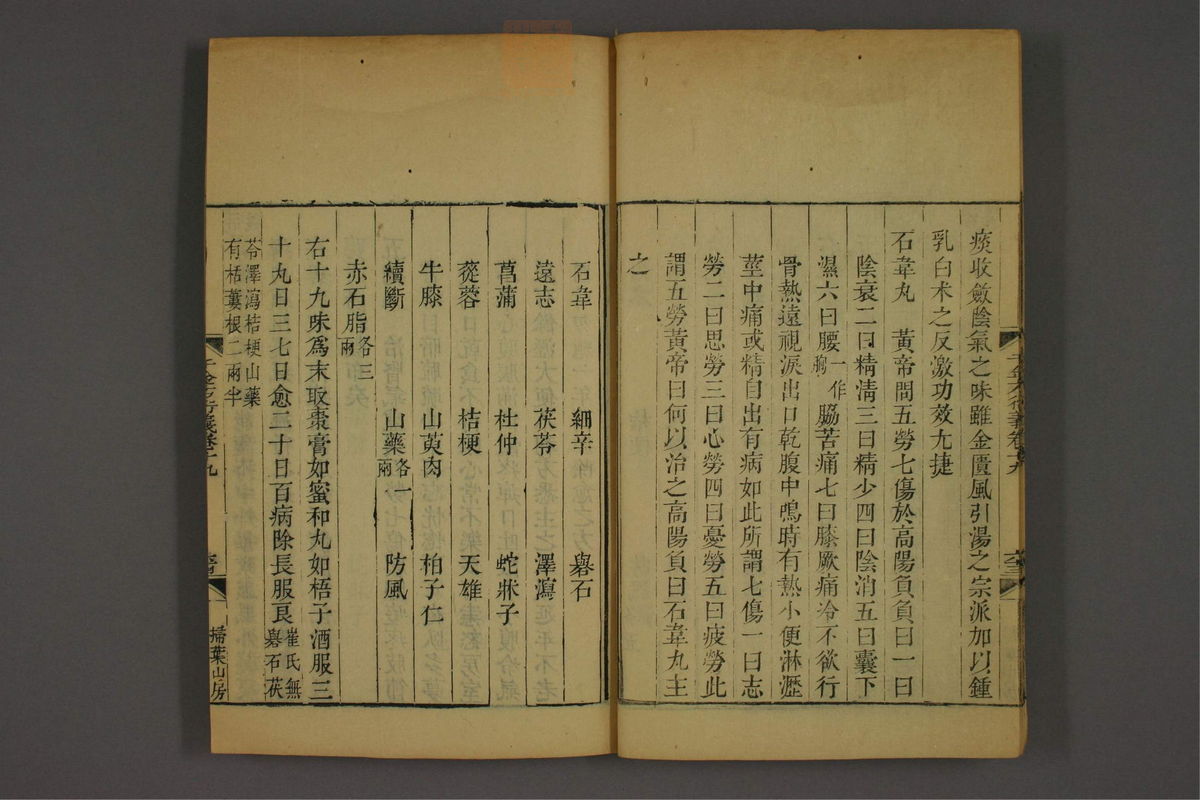 痰收斂陰氣之味雖金匱風引湯之宗派加以鍾
乳白术之反激功效尤捷
石韋丸　黃帝問五勞七傷於高陽負負曰一曰
陰衰二曰精淸三曰精少四曰陰消五曰囊下
濕六曰腰一作胸脇苦痛七曰膝厥痛冷不欲行
骨熱遠視淚出口乾腹中鳴時有熱小便淋瀝
莖中痛或精自出有病如此所謂七傷一曰志
勞二曰思勞三曰心勞四曰憂勞五曰疲勞此
謂五勞黃帝曰何以治之高陽負曰石韋丸主
之
石韋　細辛　礜石
遠志　茯苓　澤瀉
菖蒲　杜仲　蛇牀子
蓯蓉　桔梗　天雄
牛膝　山萸肉　柏子仁
續斷　山藥各一兩　防風
赤石脂各三兩
右十九味爲末取棗膏如蜜和丸如梧子酒服三
十丸日三七日愈二十日百病除長服良崔氏無礜石茯
苓澤瀉桔梗山藥有栝蔞根二兩半
千金方衍義卷十九
掃葉山房